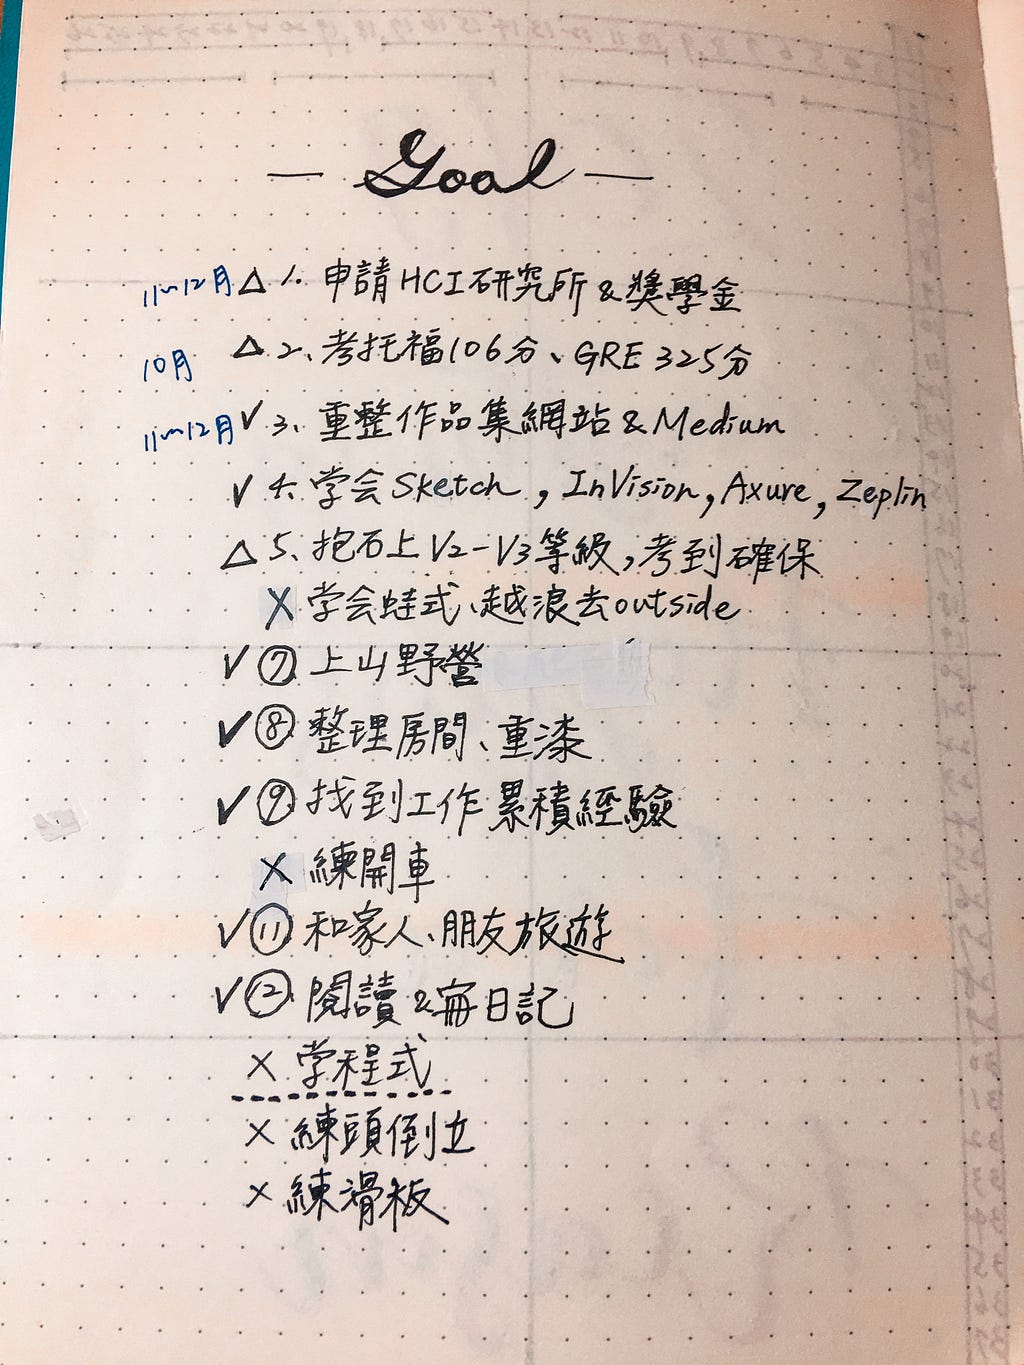 — Goal —
11~12月 △ 1. 申請HCI研究所&獎學金
10月 △ 2、考托福106分、GRE 325分
11~12月 ✓ 3、重整作品集網站&Medium
✓ 4. 学会Sketch, InVision, Axure, Zeplin
△ 5、抱石上V2-V3等級,考到確保
X 学会蛙式、越浪去outside
✓ ⑦ 上山野營
✓ ⑧ 整理房間、重漆
✓ ⑨ 找到工作累積經驗
X 練開車
✓ ⑪ 和家人、朋友旅遊
✓ ⑫ 閱讀&寫日記
X 学程式
X 練頭倒立
X 練滑板